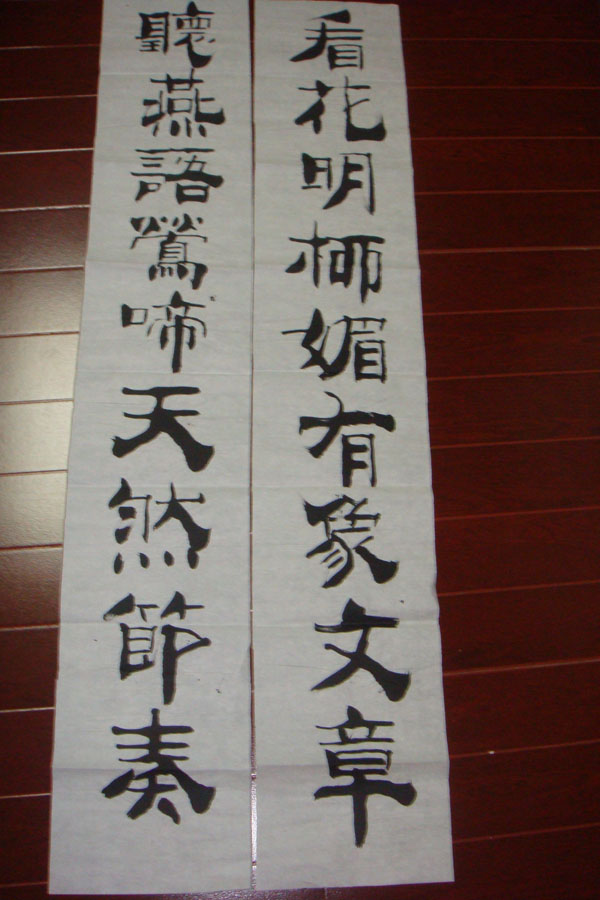 看花明柳媚有象文章
聽燕語鶯啼天然節奏